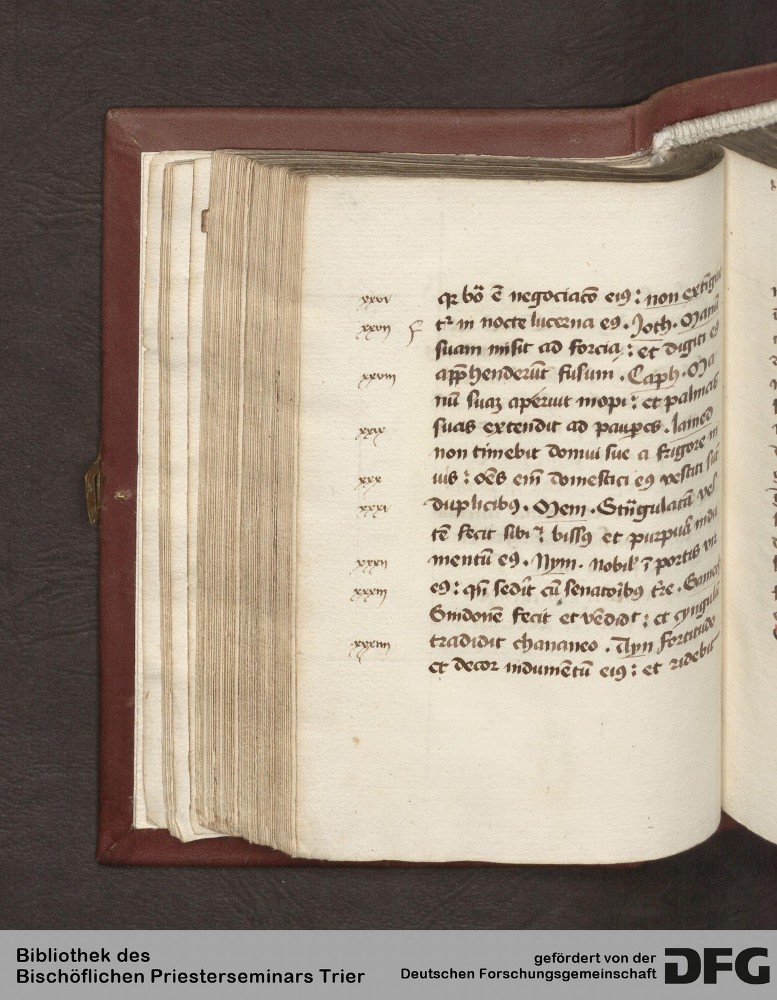 xxvi qꝛ bō ē negociacō eiꝯ : non extīgue
xxvii tᷣ in nocte lucerna eꝯ . Joth . Manū
suam misit ad forcia : et digiti eꝯ
xxviii app̄henderūt fusum . Caph . Ma
nū suaꝫ aperuit inopi : et palmas
xxix suas extendit ad paup̄es . lamed
non timebit domui sue a frigore ni
xxx uis : oēs em̄ domestici eꝯ vestiti sūt
xxxi duplicibꝯ . Mem . Strīgulatā ves
tē fecit sibi : bissꝯ et purpura indu
xxxii mentū eꝯ . Nym . nobil' ī portis vir
xxxiii eꝯ : qn̄ sedīt cū senatoībꝯ tr̄e . Samech
Sindonē fecit et vēdidt : et cyngulū
xxxiiii tradidit chananeo . Ayn Fortitudo
et decor indumētū eiꝯ : et ridebit
Bibliothek des
Bischöflichen Priesterseminars Trier
gefördert von der
Deutschen Forschungsgemeinschaft DFG